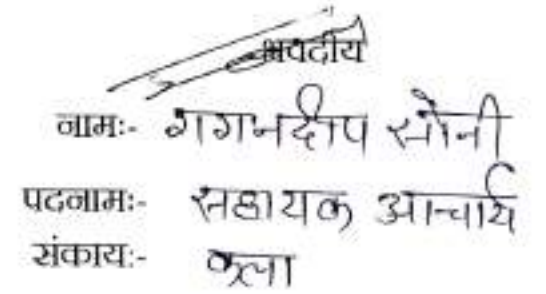 भवदीय
नामः- गगनदीप सोनी
पदनामः- सहायक आचार्य
संकायः- कला